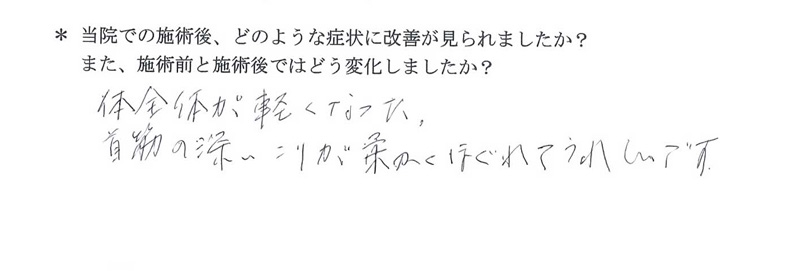 * 当院での施術後、どのような症状に改善が見られましたか?
また、施術前と施術後ではどう変化しましたか?
体全体が軽くなった。
首筋の深いコリが柔かくほぐれてうれしいです。